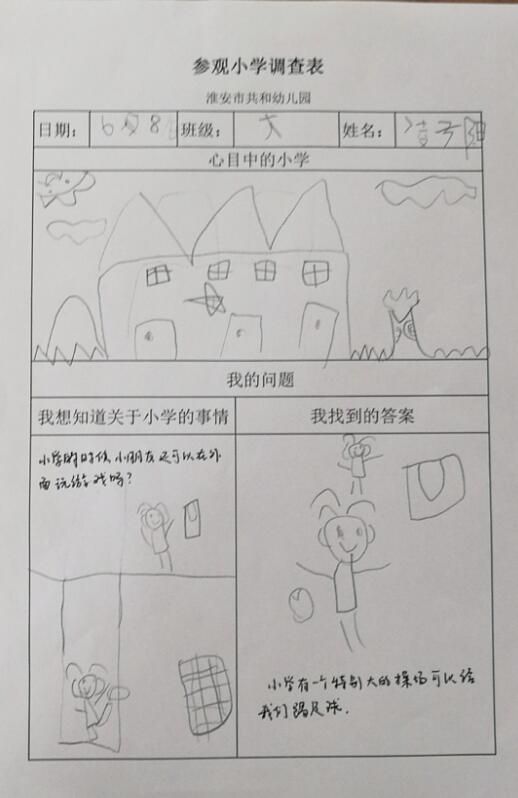 参观小学调查表
淮安市共和幼儿园
日期： 6月8日 班级： 大 姓名： 子阳
心目中的小学
我的问题
我想知道关于小学的事情 我找到的答案
小学的时候，小朋友还可以在外
面玩游戏吗？
小学有一个特别大的操场可以给
我们踢足球.